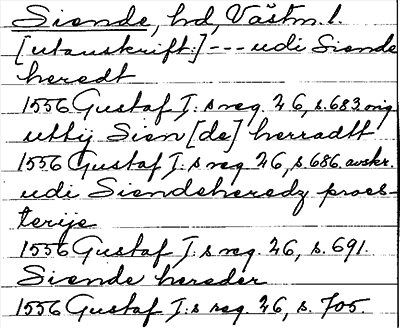 Siende, hd, Västm. l.
[utanskrift:] --- udi Siende
heredt
1556 Gustaf I:s reg. 26, s. 683. orig
uttij Sien[de] herradtt
1556 Gustaf I:s reg. 26, s. 686. avskr.
udi Siendeheredz proes-
terije
1556 Gustaf I:s reg. 26, s. 691.
Siende hereder
1556 Gustaf I:s reg. 26, s. 705.